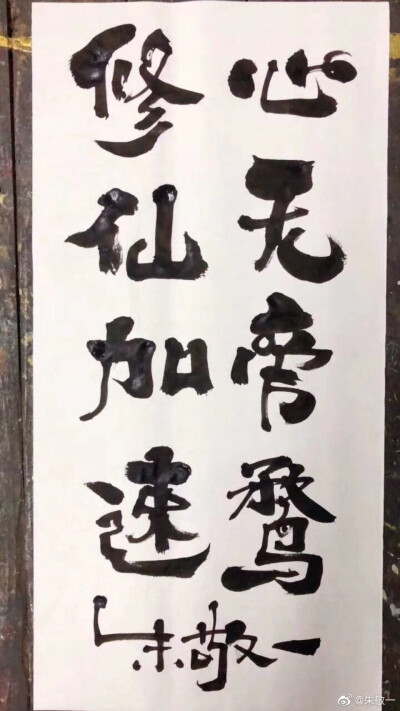 心无旁鹜
修仙加速
朱敬一
@朱敬一